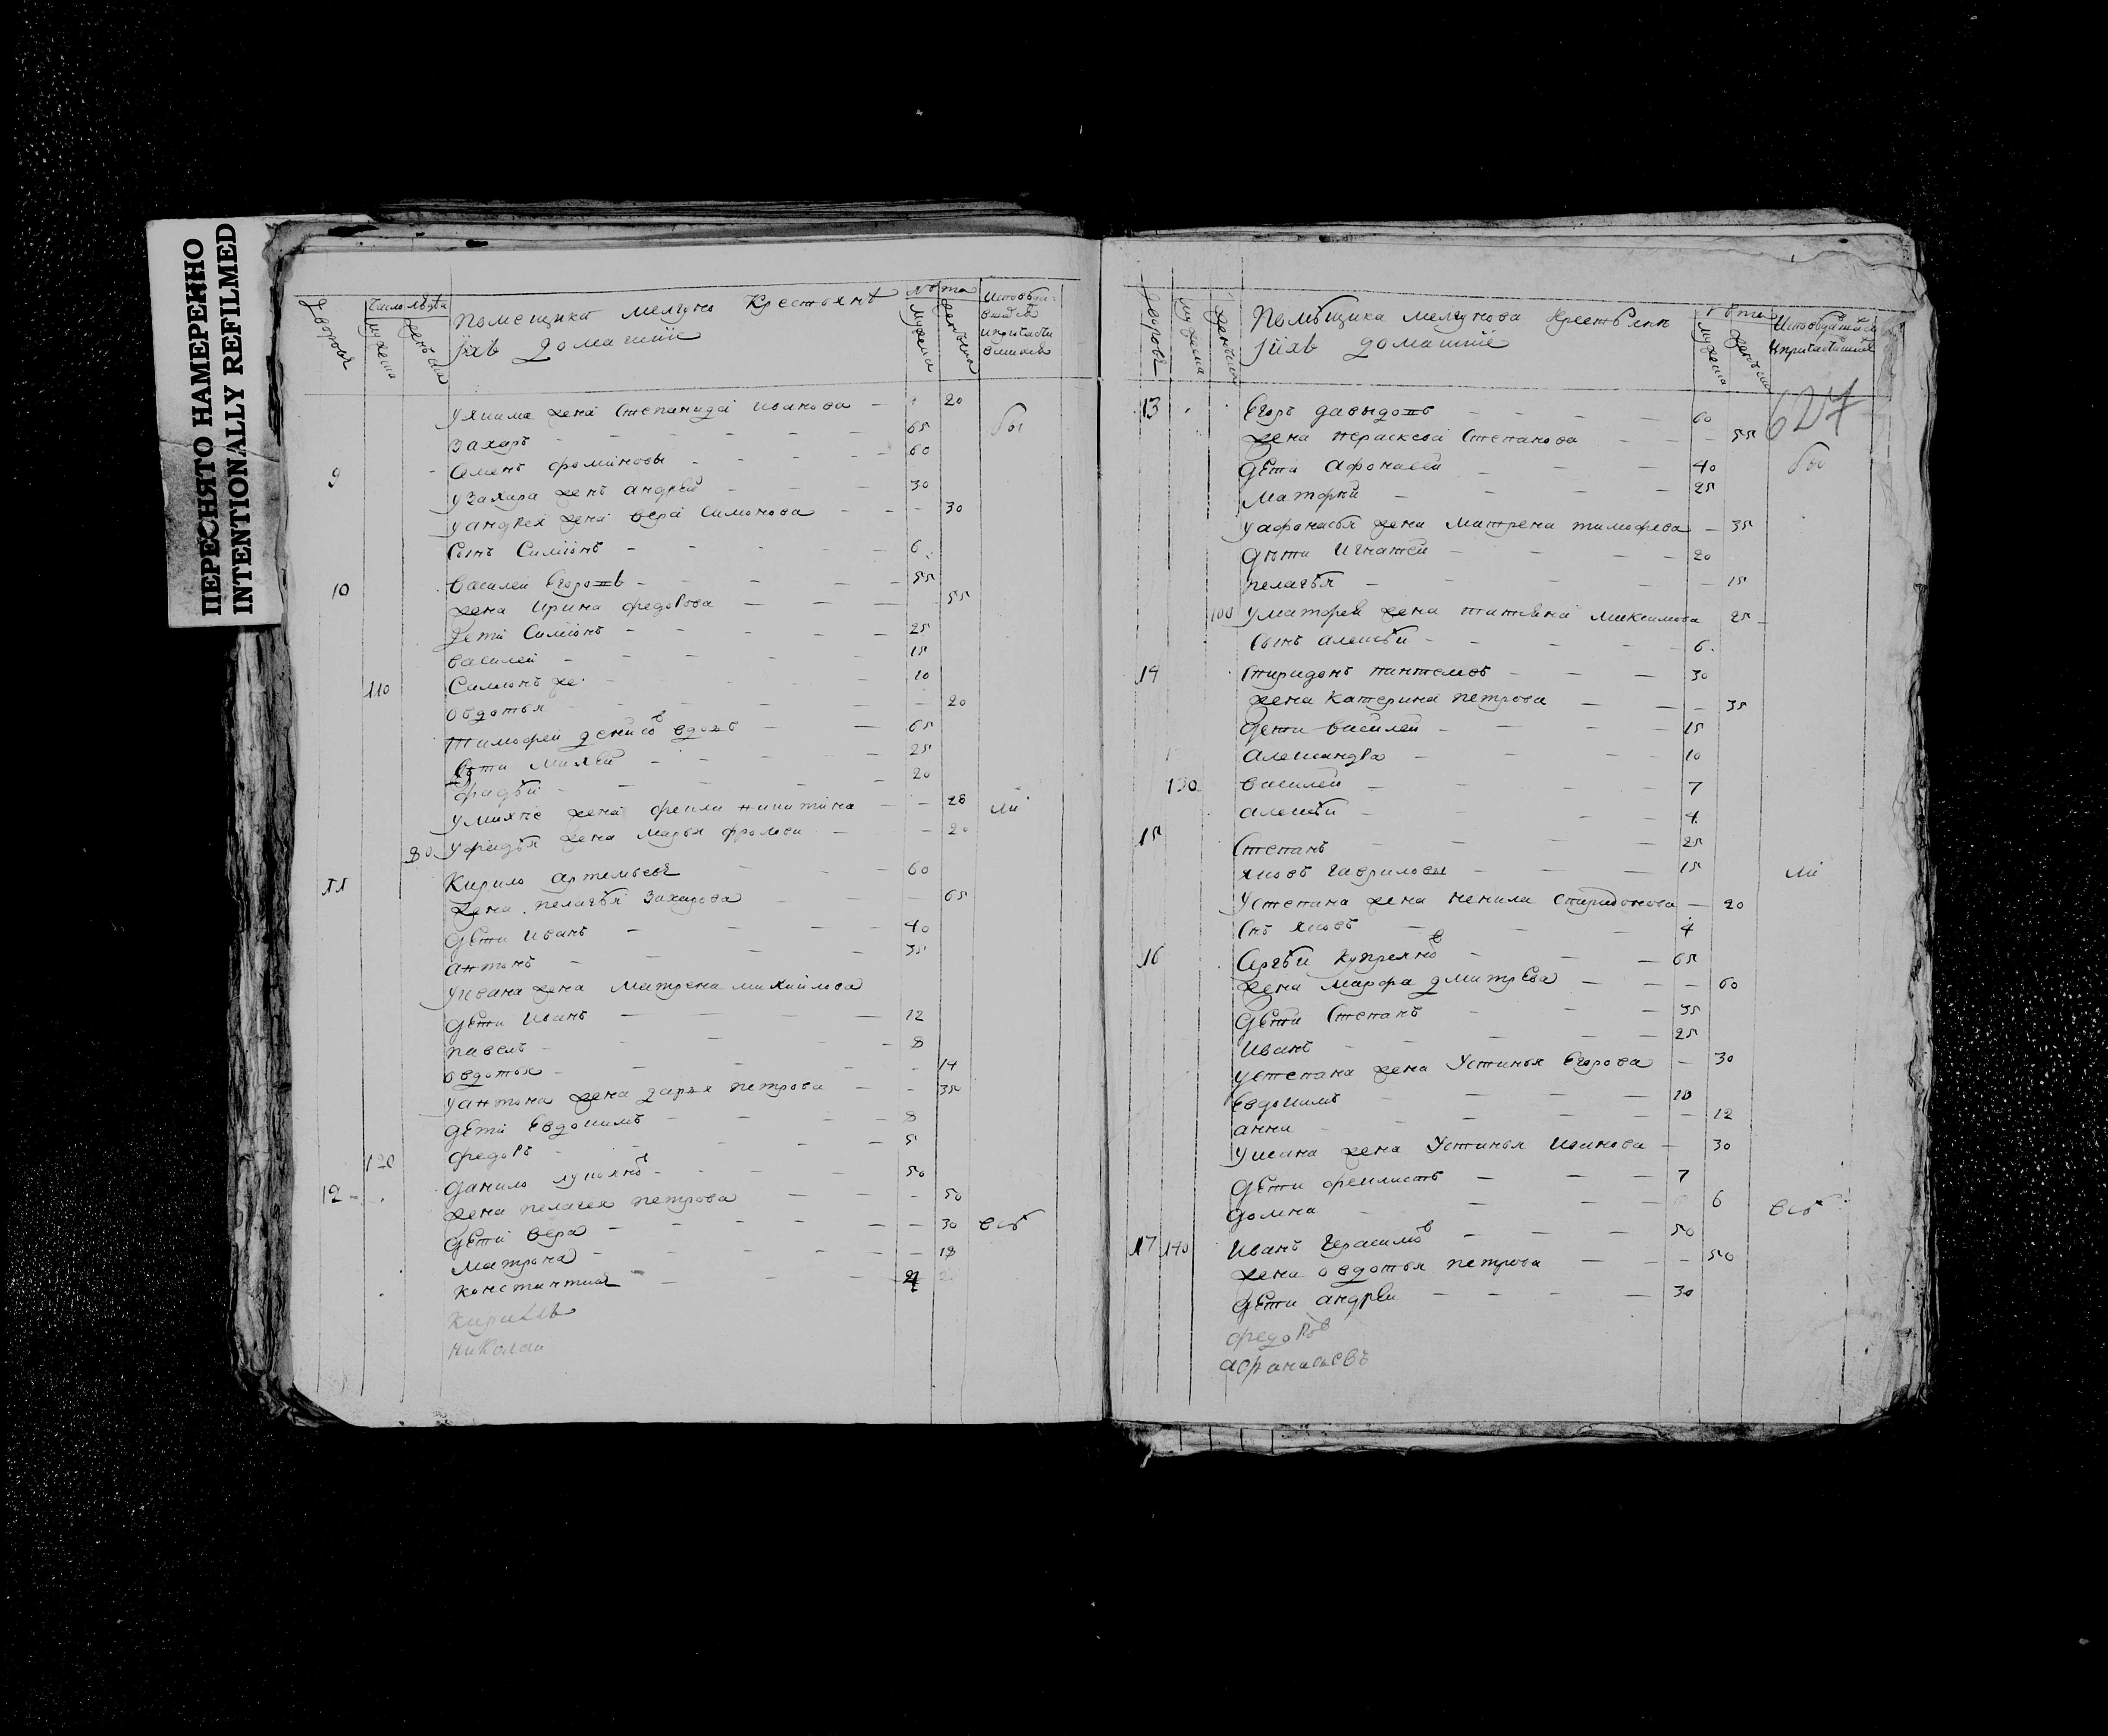 ПЕРЕСНЯТО НАМЕРЕННО
INTENTIONALLY REFILMED
дворовъ
число людей
мужеска
женска
помещика мелгуно крестьянъ
iихъ домашнiе
лета
мужеска
женска
уякима жена степанида иванова — 20
захаръ — 65
9 семенъ фоминовы — 60
узахара женъ андрей — 30
уандрея жена вера симонова — 30
сынъ симiонъ — 6
10 василей егоровъ — 55
жена ирина федорова — 55
дети симiонъ — 25
василей — 15
110 симионъ же — 10
овдотья — 20
тимофей денисовъ вдовъ — 65
дети михей — 25
фадѣй — 20
умихѣе жена фекла никитина — 28
80 уфадѣя жена марья фролова — 20
11 кирило артемьевъ — 60
жена пелагѣя захарова — 65
дети иванъ — 40
антонъ — 35
уивана жена матрена михайлова
дети иванъ — 12
павелъ — 8
овдотья — 14
уантона жена дарья петрова — 35
дети евдокимъ — 8
120 федоръ — 5
12 данило лукьяновъ — 50
жена пелагея петрова — 50
дети вера — 30
матрона — 18
константинъ — 4
кириллъ
николаи
дворовъ
мужеска
женска
помѣщика мелгунова крестьянъ
iихъ домашнiе
лета
мужеска
женска
627
13 егоръ давыдовъ — 60
жена пераскева степанова — 55
дети афонасей — 40
матфей — 25
уафонасья жена матрена тимофеева — 35
дѣти игнатей — 20
пелагѣя — 15
100 уматфея жена татьяна максимова 25
сынъ алексѣй — 6
14 спиридонъ пантелевъ — 30
жена катерина петрова — 35
дети василей — 15
александра — 10
130 василей — 7
алексѣй — 4
15 степанъ — 25
яковъ гавриловы — 15
устепана жена ненила спиридонова — 20
снъ яковъ — 4
16 сергѣй купреяновъ — 65
жена марфа дмитрева — 60
дети степанъ — 35
иванъ — 25
устепана жена устинья егорова — 30
евдокимъ — 10
анна — 12
уивана жена устинья иванова — 30
дети феклистъ — 7
домна — 6
17 140 иванъ герасимовъ — 50
жена овдотья петрова — 50
дети андрей — 30
федоровъ
афанасьевъ